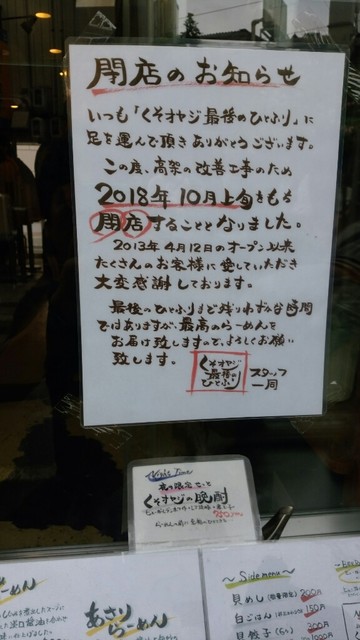 閉店のお知らせ
いつも「くそオヤジ最後のひとふり」に
足を運んで頂きありがとうございます。
この度、高架の改善工事のため
2018年10月上旬をもち
閉店することとなりました。
2013年4月12日のオープン以来
たくさんのお客様に愛していただき
大変感謝しております。
最後のひとふりまで残りわずかな時間
ではありますが、最高のらーめんを
お届け致しますので、よろしくお願い
致します。
くそオヤジ
最後の
ひとふり
スタッフ
一同
Night Time
夜の限定セット
くそオヤジの晩酌
らーめん
あさり
らーめん
〜Side menu〜
貝めし(数量限定) 200円
白ごはん 150円
貝餃子(5ヶ) 300円